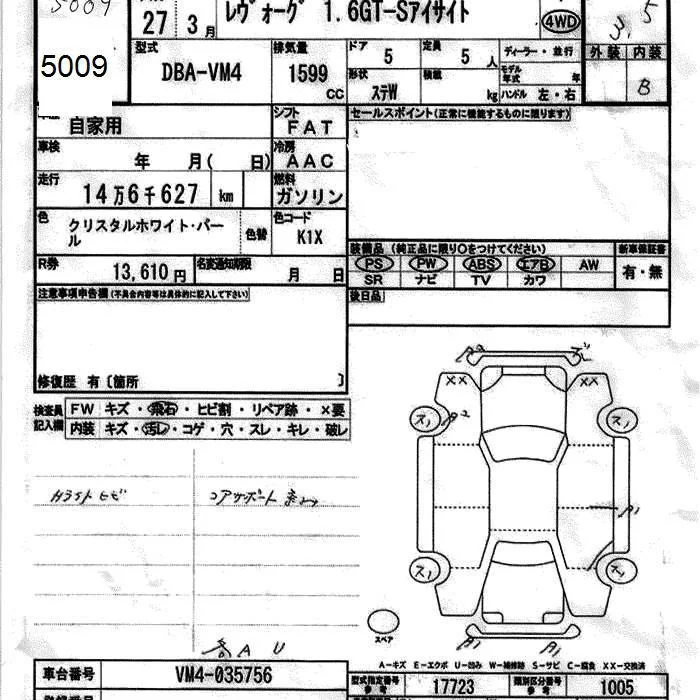 5009
27 3月
レヴォーグ 1.6GT-Sアイサイト
4WD
3.5
外装 内装
B
5009
型式 DBA-VM4
排気量 1599 CC
ドア 5
定員 5 人
形状 ステW
積載 kg
ディーラー・並行
モデル年式 年
ハンドル 左・右
自家用
シフト FAT
セールスポイント(正常に機能するものに限ります)
車検 年 月( 日)
冷房 AAC
走行 14万6千627 km
燃料 ガソリン
色 クリスタルホワイト・パール
色替
色コード K1X
R券 13,610 円
名変通知期限 月 日
装備品 (純正品に限り○をつけてください)
新車保証書
PS PW ABS エアB AW
有・無
SR ナビ TV カワ
後日品
注意事項申告欄(不具合内容等は具体的に記入して下さい)
修復歴 有〔箇所 〕
検査員記入欄
FW キズ・飛石・ヒビ割・リペア跡・×要
内装 キズ・汚レ・コゲ・穴・スレ・キレ・破レ
コアサポート
XX XX
A2
A1
A1 A1
スペア
A U
A-キズ E-エクボ U-凹み W-補修跡 S-サビ C-腐食 XX-交換済
車台番号 VM4-035756
型式指定番号 参考 17723
類別区分番号 参考 1005